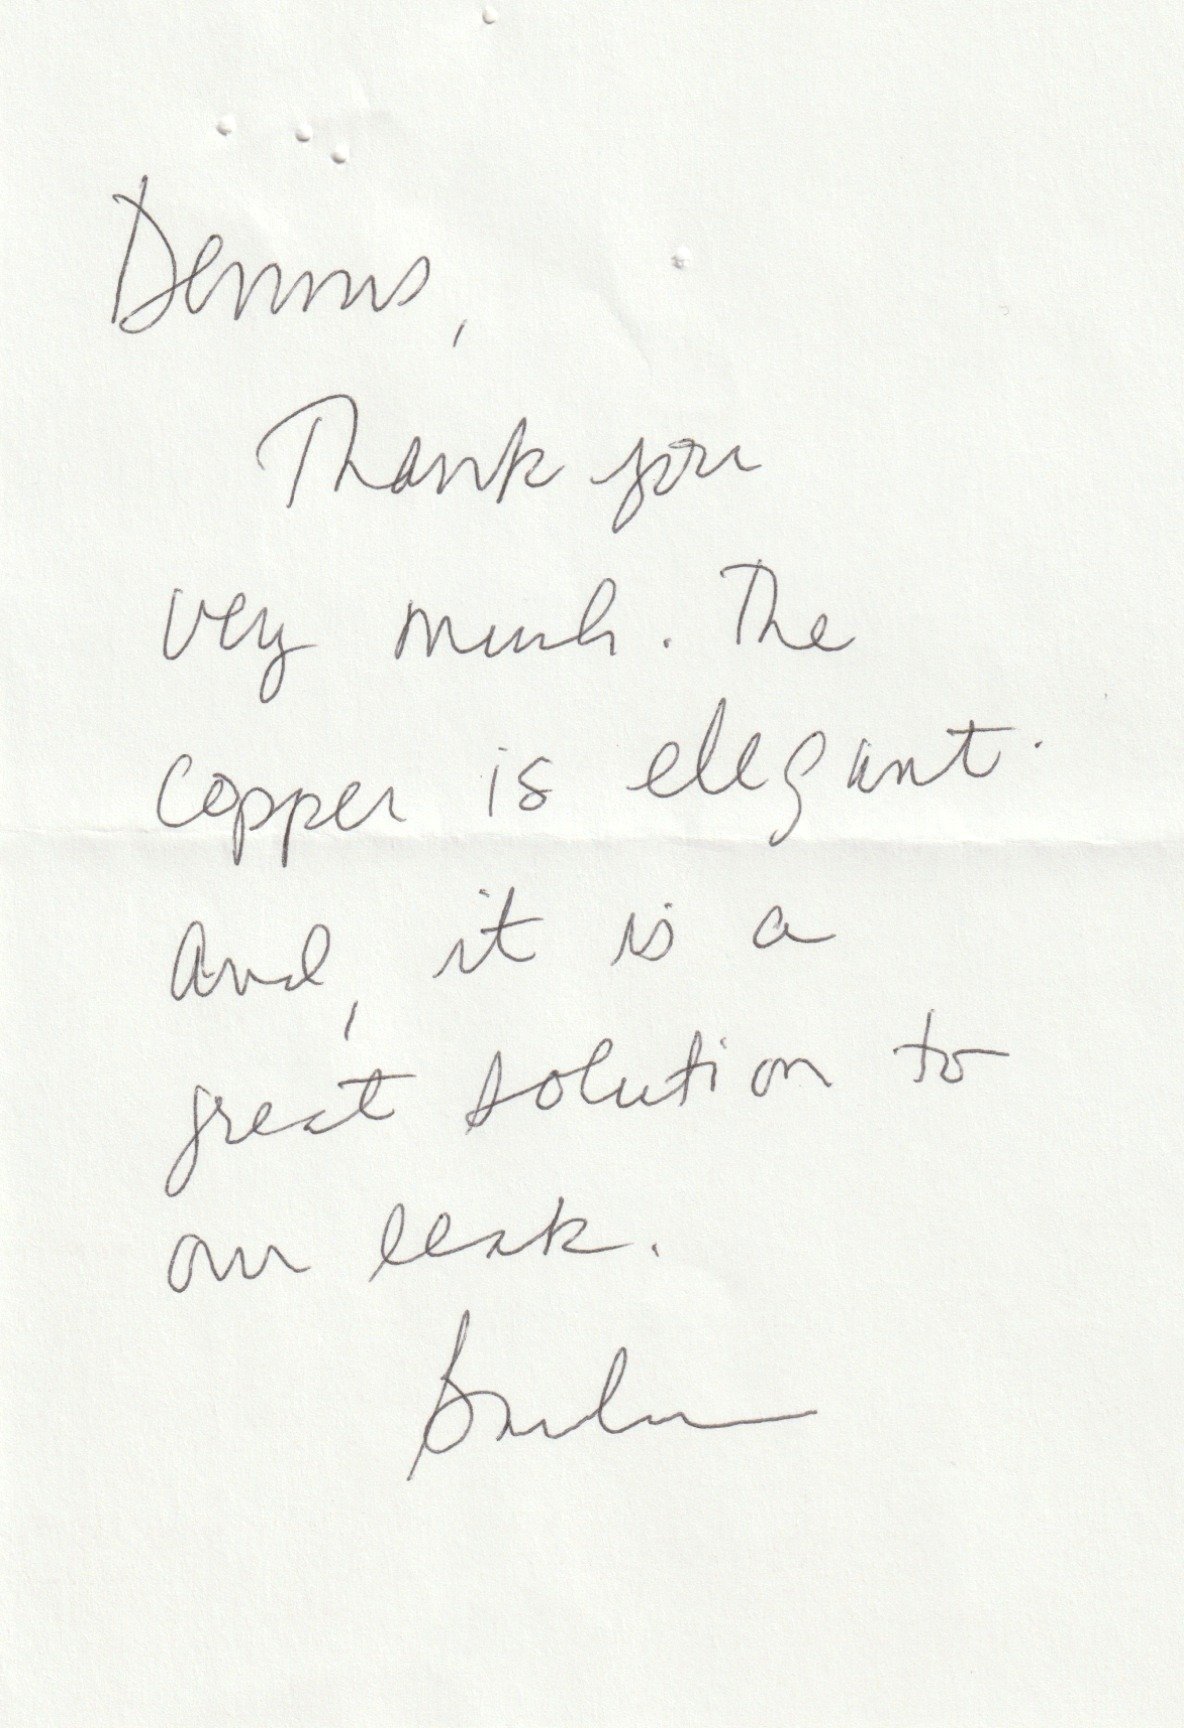 Dennis,
Thank you
very much. The
copper is elegant.
And, it is a
great solution to
our leak.